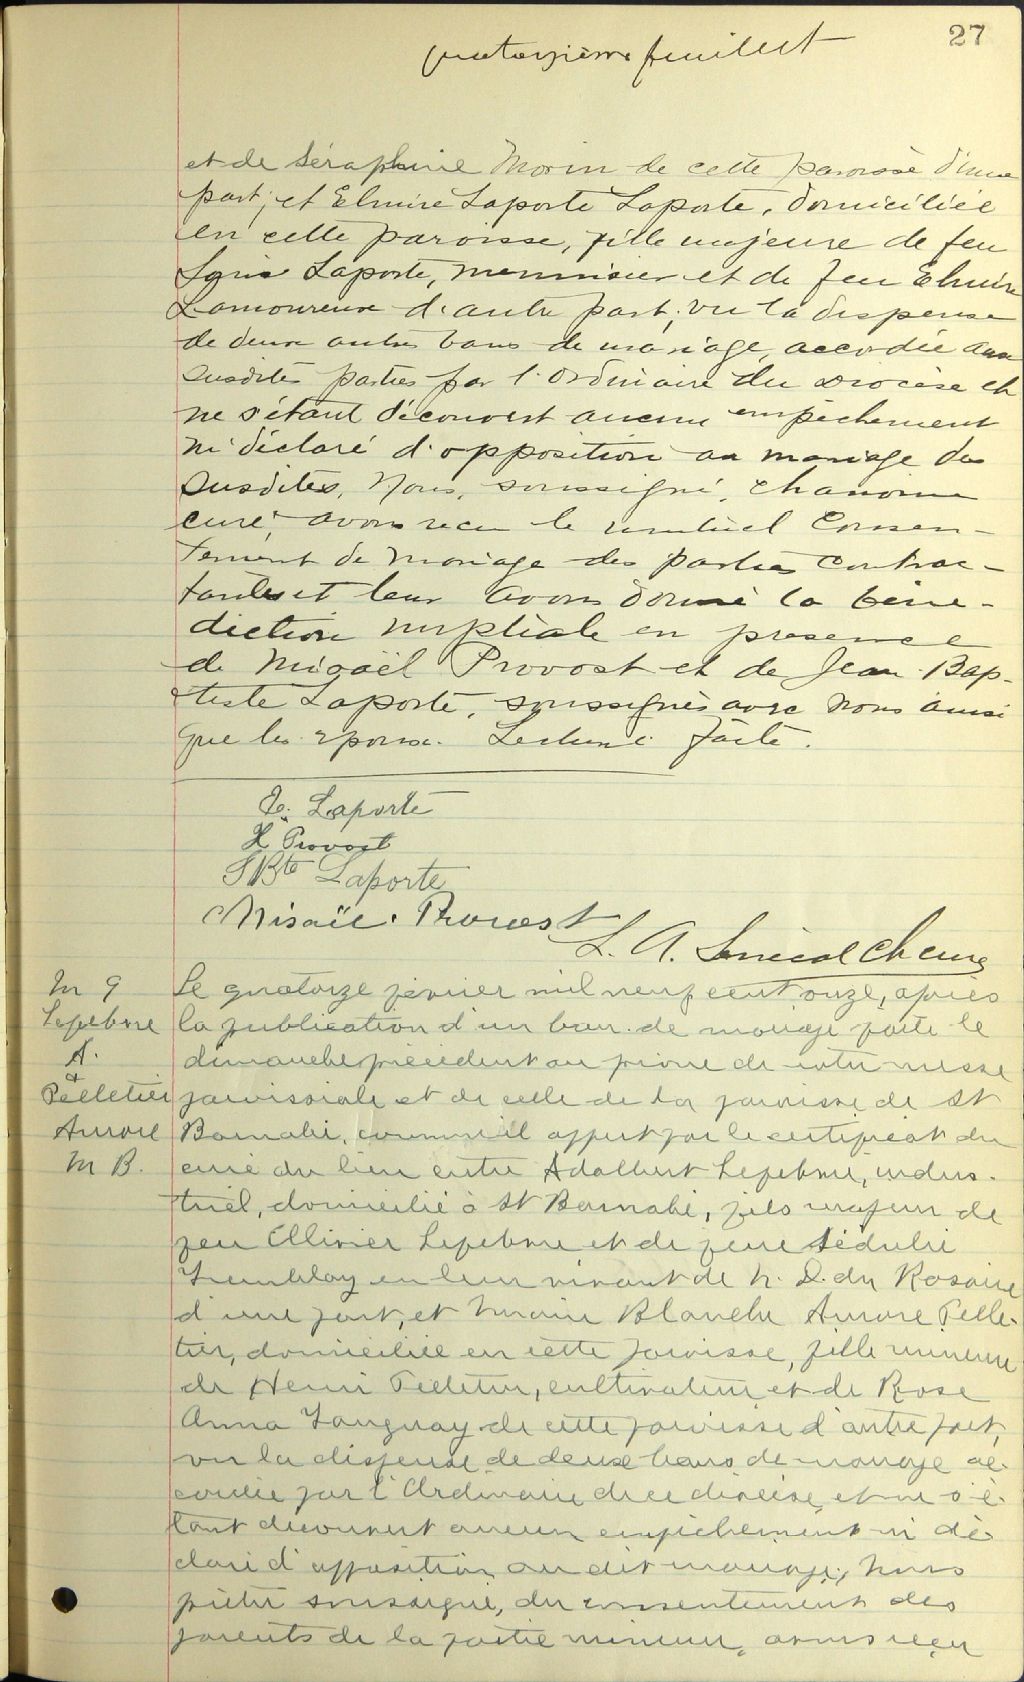 27
quatorzième feuillet
et de Séraphine Morin de cette paroisse d'une
part; et Elmire Laporte Laporte, domiciliée
en cette paroisse, fille majeure de feu
Louis Laporte, menuisier et de feu Elmire
Lamoureux d'autre part; vu la dispense
de deux autres bans de mariage, accordée aux
susdites parties par l'Ordinaire du diocèse et
ne s'étant découvert aucun empêchement
ni déclaré d'opposition au mariage des
susdites, Nous, soussigné, chanoine
curé, avons reçu le mutuel consen-
tement de mariage des parties contrac-
tantes et leur avons donné la béné-
diction nuptiale en presence
de Misaël Provost et de Jean Bap-
tiste Laporte, soussignés avec nous ainsi
que les epoux. Lecture faite.
E. Laporte
H Provost
J Bte Laporte
Misaël Provost
L. A. Senécal Ch curé
M 9
Lefebvre
A.
&
Pelletier
Aurore
M B.
Le quatorze février mil neuf cent onze, après
la publication d'un ban de mariage faite le
dimanche précédent au prône de notre messe
paroissiale et de celle de la paroisse de St
Barnabé, comme il appert par le certificat du
curé du lieu entre Adalbert Lefebvre, indus-
triel, domicilié à St Barnabé, fils majeur de
feu Ollivier Lefebvre et de feue Sédulie
Tremblay en leur vivant de N. D. du Rosaire
d'une part, et Marie Blanche Aurore Pelle-
tier, domiciliée en cette paroisse, fille mineure
de Henri Pelletier, cultivateur et de Rose
Anna Tanguay de cette paroisse d'autre part,
vu la dispense de deux bans de mariage ac-
cordée par l'Ordinaire de ce diocèse, et ne s'é-
tant decouvert aucun empêchement ni dé-
claré d'opposition au dit mariage, Nous
prêtre soussigné, du consentement des
parents de la partie mineure, avons reçu